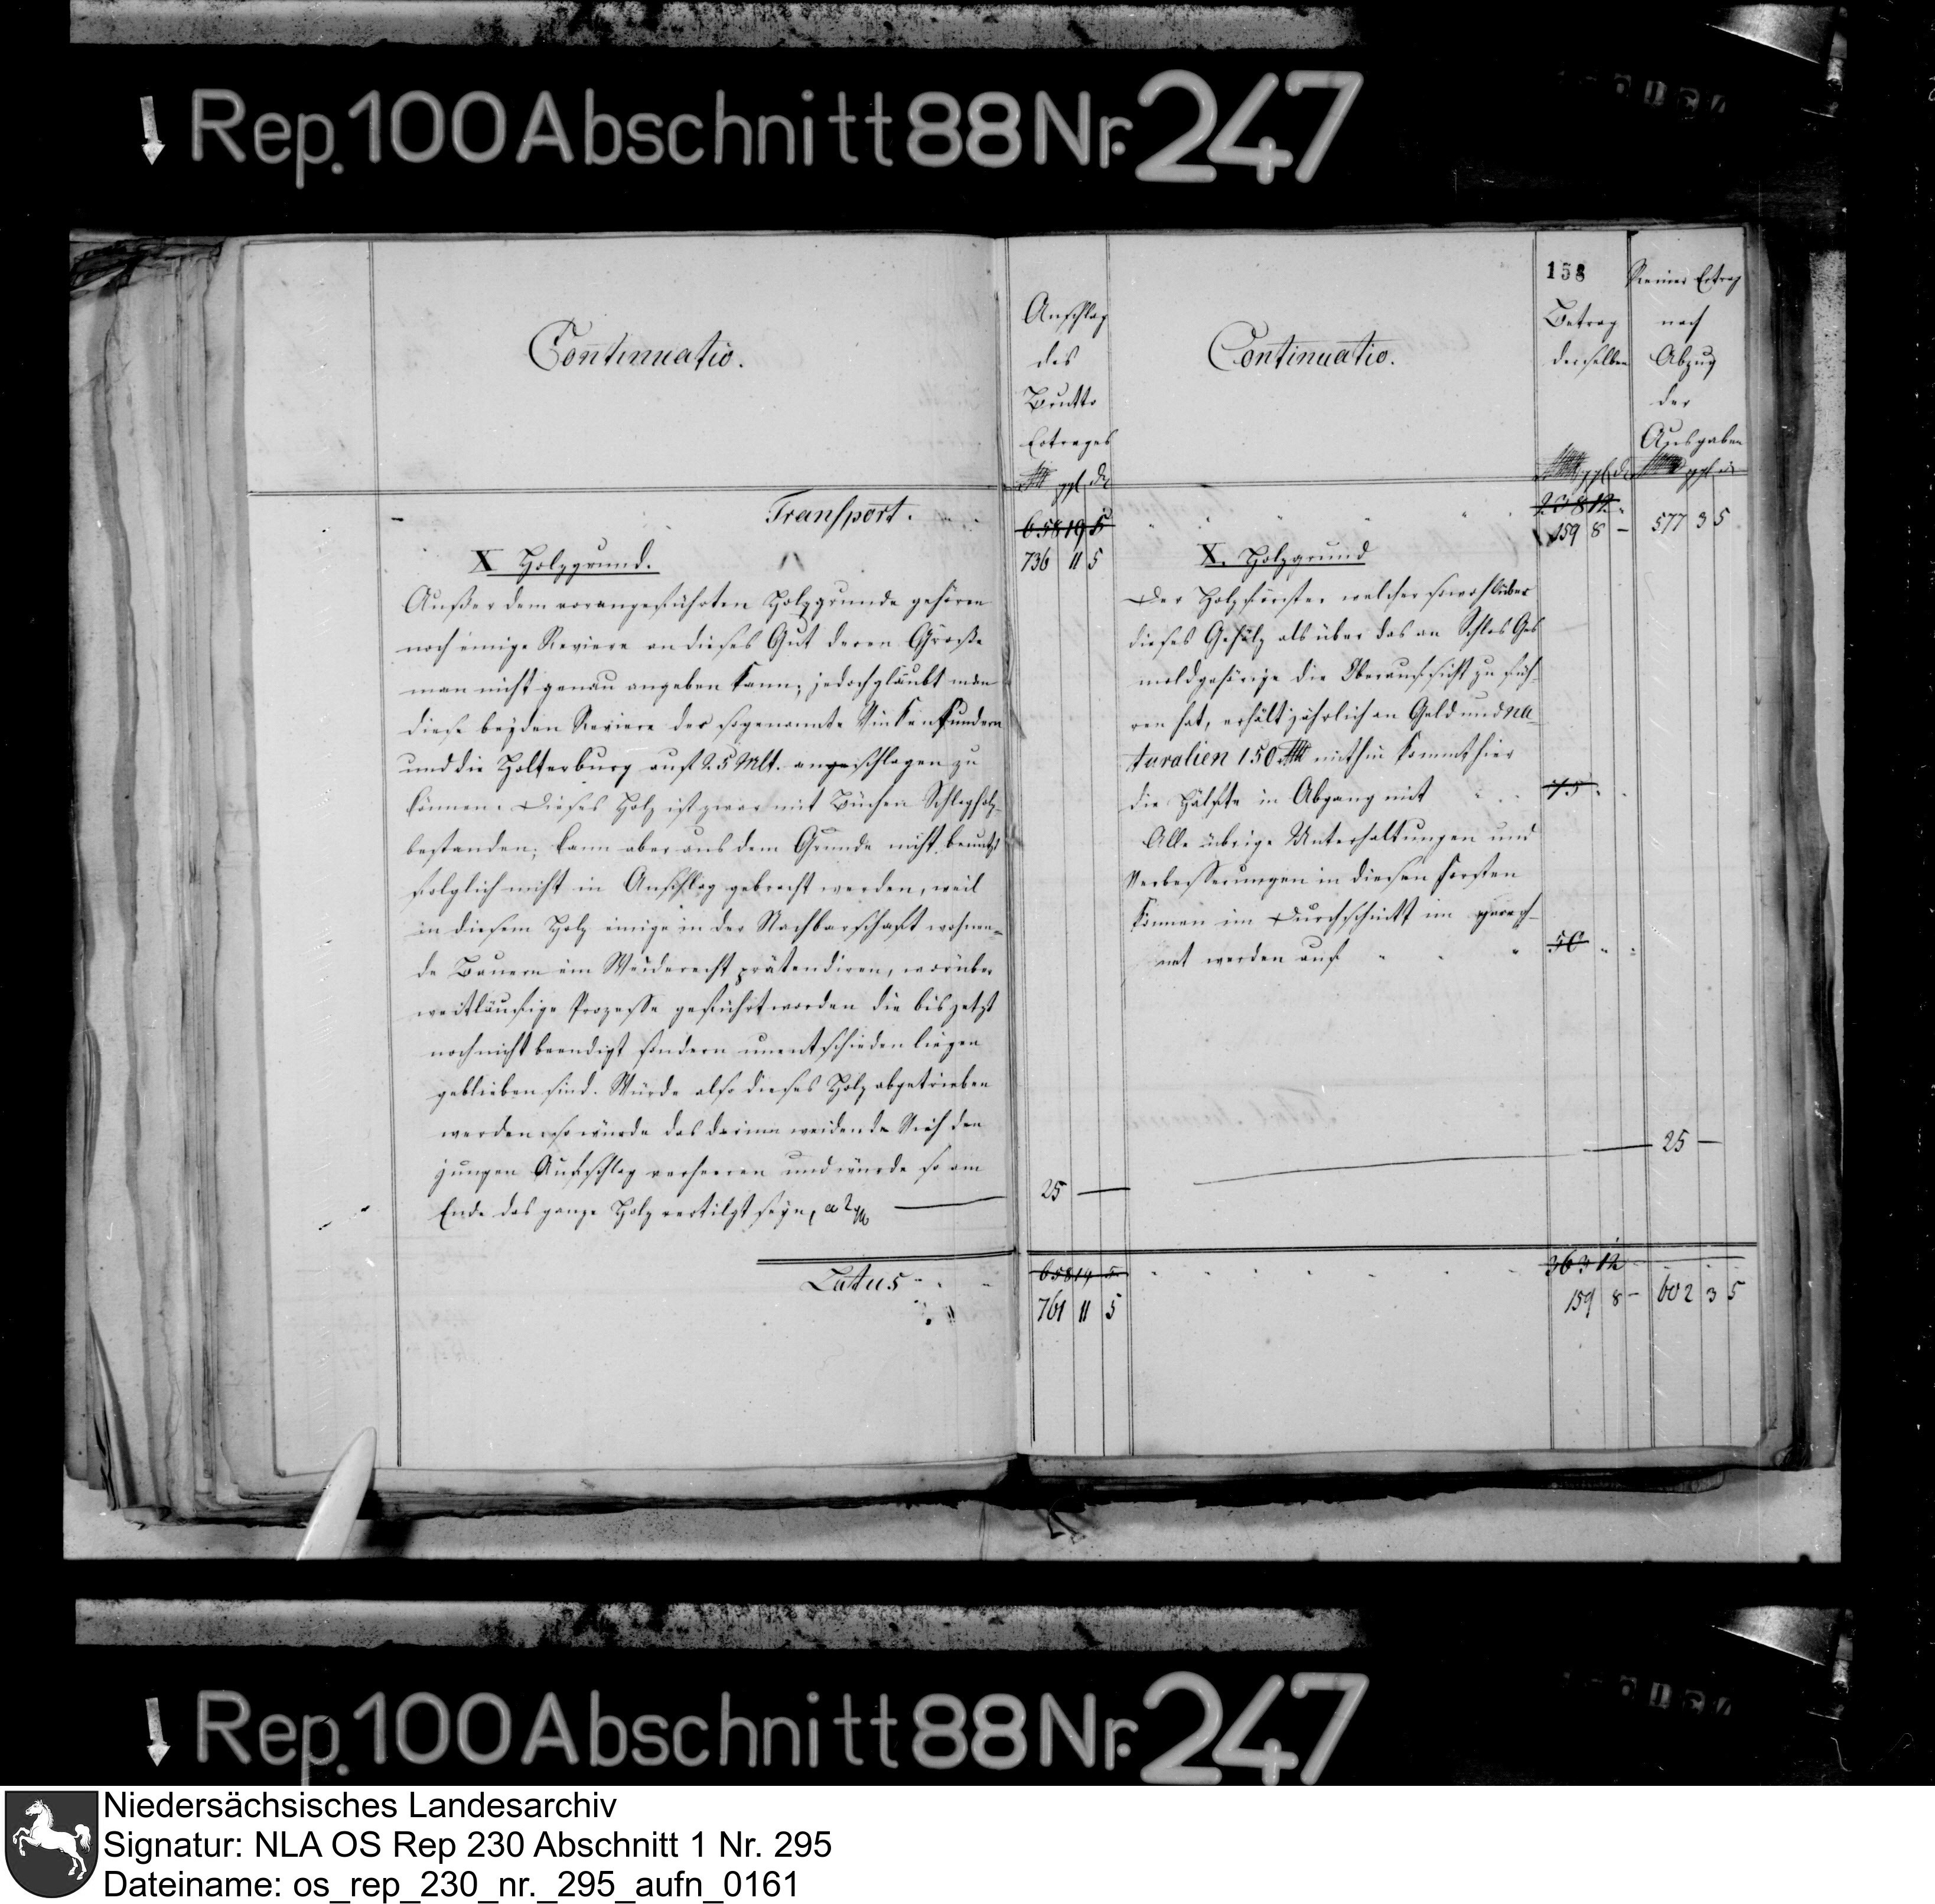 Rep. 100 Abschnitt 88 Nr. 247
Continuatio.
Anschlag
des
Brutto
Ertrages
ggl. d.
Transport.
658 19 5
736 11 5
X Holzgrund.
Außer dem vorangeführten Holzgrunde gehören
noch einige Reviere an dieses Gut deren Größe
man nicht genau angeben kann; jedoch glaubt man
diese beyden Reviere der sogenannte Vinkensundern
und die Holterburg auf 25 Mlt. angeschlagen zu
können. Dieses Holz ist zwar mit Büchen Schlagholz
bestanden; kann aber aus dem Grunde nicht benutzt
folglich nicht in Anschlag gebracht werden, weil
in diesem Holz einige in der Nachbarschaft wohnen-
de Bauern ein Weiderecht prätendiren, worüber
weitläufige Prozesse geführt worden die bis jetzt
noch nicht beendigt sondern unentschieden liegen
geblieben sind. Würde also dieses Holz abgetrieben
werden so würde das darinn weidende Vieh den
jungen Aufschlag verheeren und würde so am
Ende das ganze Holz vertilgt seyn, a 2
25 —
Latus
658 14 5
761 11 5
158
Continuatio.
Betrag
derselben
ggl. d.
Reiner Ertrag
nach
Abzug
der
Ausgaben
ggl. d.
238 12
159 8 — 577 3 5
X. Holzgrund
Der Holzförster welcher sowohl über
dieses Gehölz als über das an Schlos Ges
mold gehörige die Oberaufsicht zu füh-
ren hat, erhält jährlich an Geld und Na
turalien 150 mithin kommt hier
die Hälfte in Abgang mit 75
Alle übrige Unterhaltungen und
Verbesserungen in diesen Forsten
können im Durchschnitt im gerech-
net werden auf 50
— 25 —
363 12
159 8 — 602 3 5
Rep. 100 Abschnitt 88 Nr. 247
Niedersächsisches Landesarchiv
Signatur: NLA OS Rep 230 Abschnitt 1 Nr. 295
Dateiname: os_rep_230_nr._295_aufn_0161